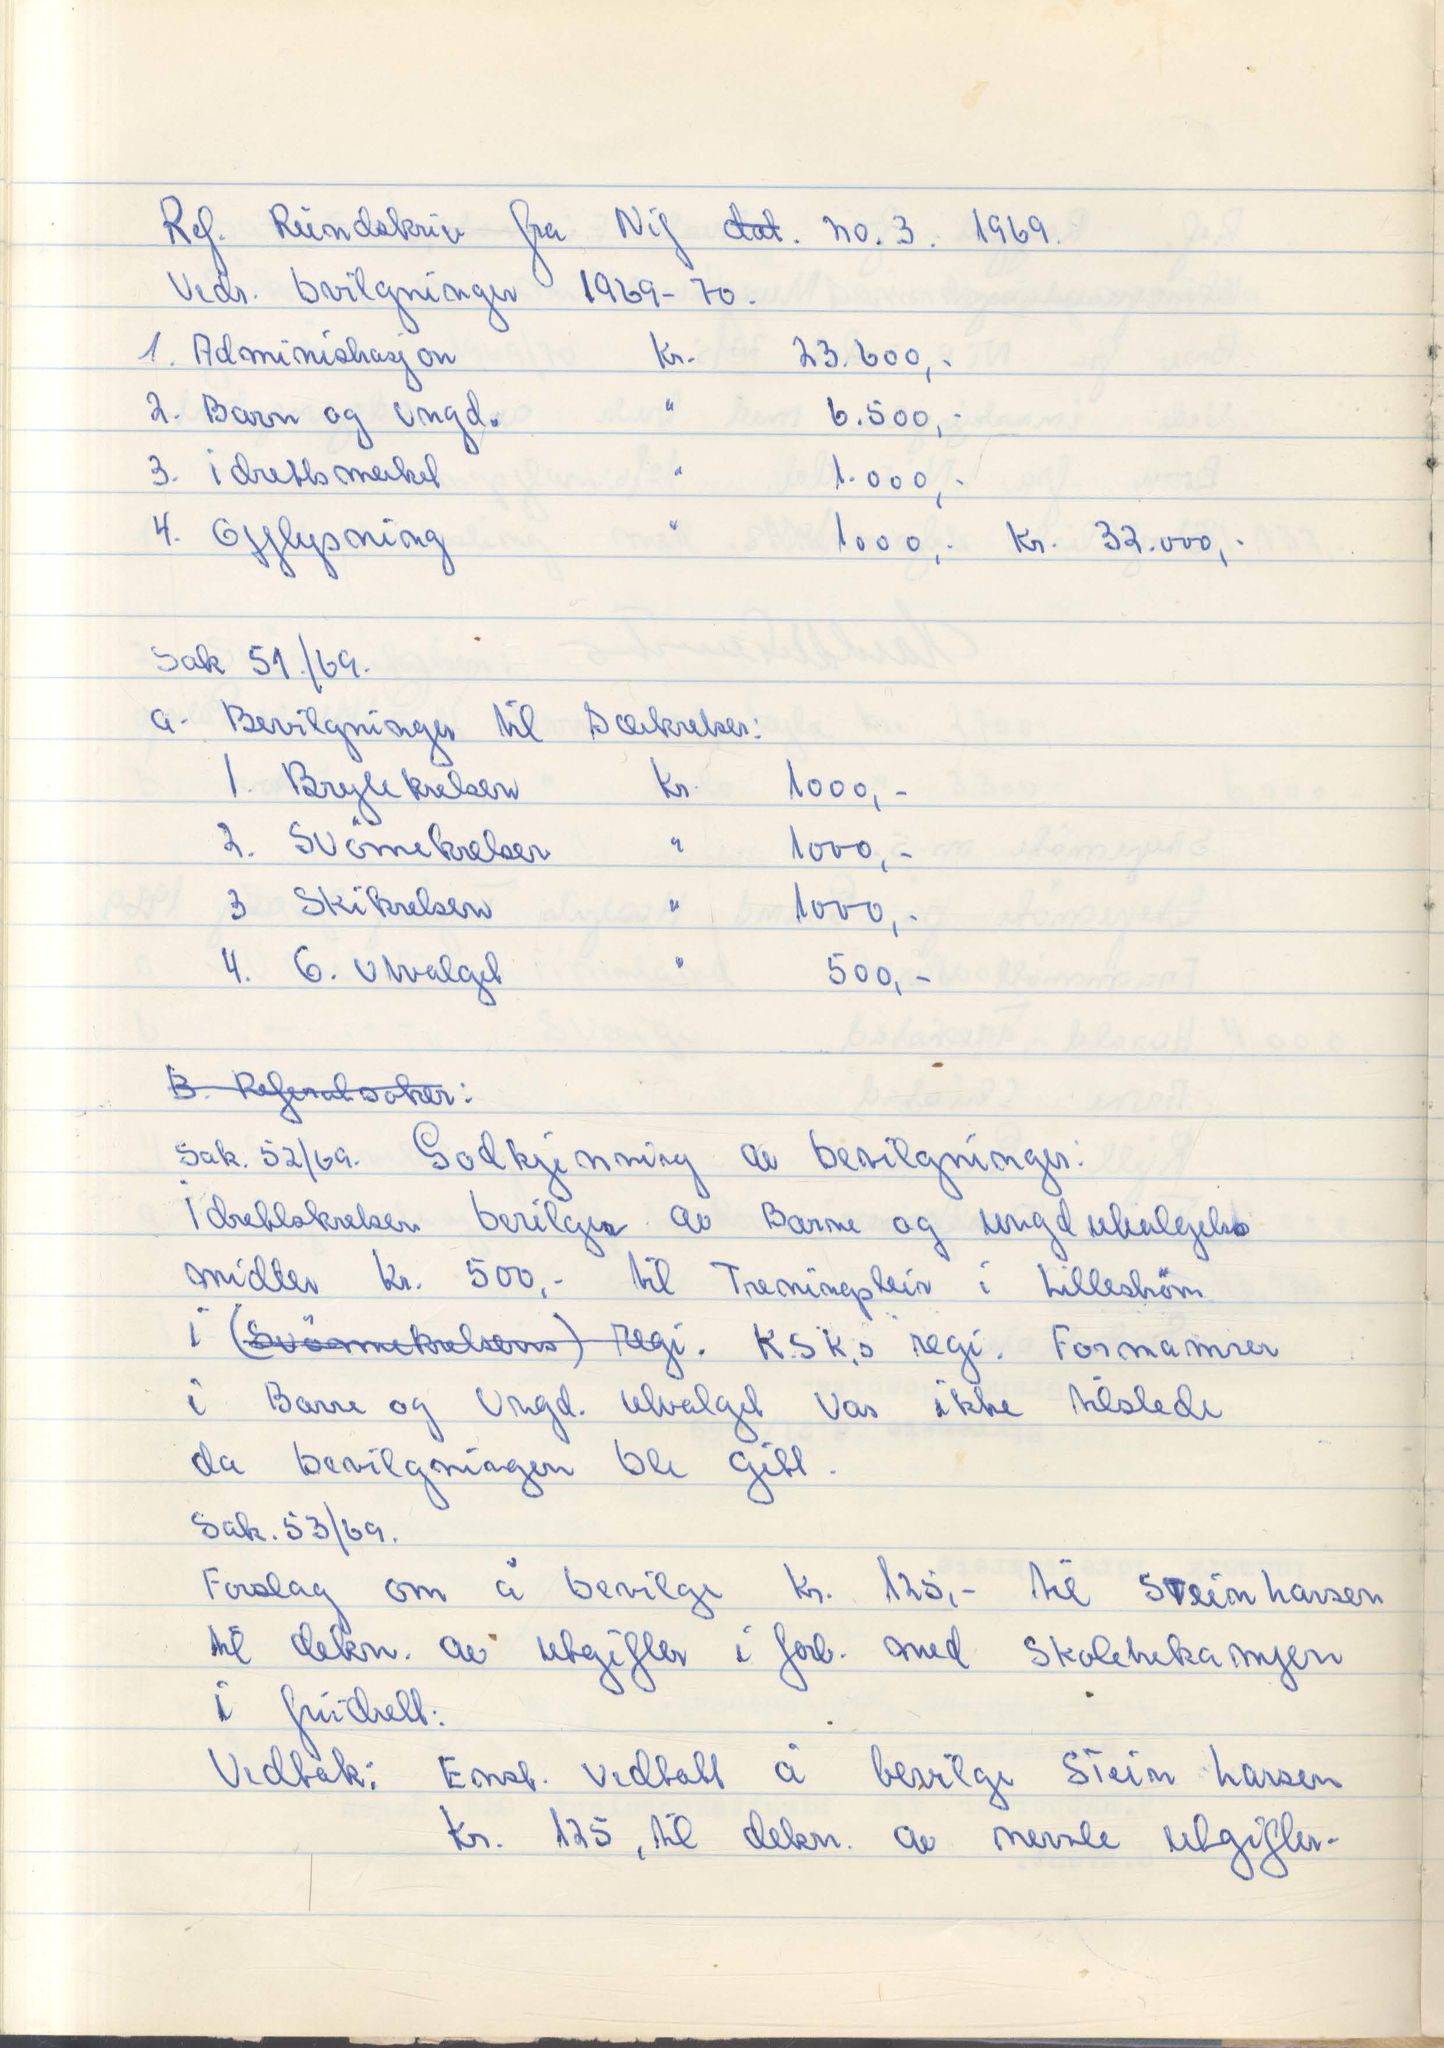 Ref. Rundskriv fra Nif dat. no. 3. 1969.
Vedr. bvilgninger 1969-70.
1. Administrasjon Kr. 23.600,-
2. Barn og Ungd. " 6.500,-
3. idrettsmerket " 1.000,-
4. Opplysning " 1000,- Kr. 32.000,-
Sak 51./69.
a. Bevilgninger til Særkretser:
1. Brytekretsen Kr. 1000,-
2. Svömekretsen " 1000,-
3 Skikretsen " 1000,-
4. G. Utvalget " 500,-
B. Referatsaker:
Sak. 52/69. Godkjinning av bevilgninger:
Idrettskretsen bevilger av Barne og ungd utvalgets
midler Kr. 500,- til Treningsleir i Lilleström
i (Svömmekretsens) regi. K.S.K,s regi. Formannen
i Barne og Ungd. utvalget var ikke tilstede
da bevilgningen ble gitt.
Sak. 53/69.
Forslag om å bevilge Kr. 125,- til Stein Larsen
til dekn. av utgifter i forb. med Skoletrekampen
i friidrett:
Vedtak: Enst. vedtatt å bevilge Stein Larsen
Kr. 125, til dekn. av nevnte utgifter.